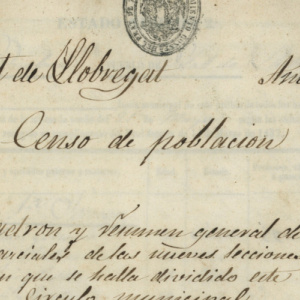 t de Llobregat Año
Censo de población
adron y resumen general de
arciales de las nueve seccione
n que se halla dividido este
Circulo municipal